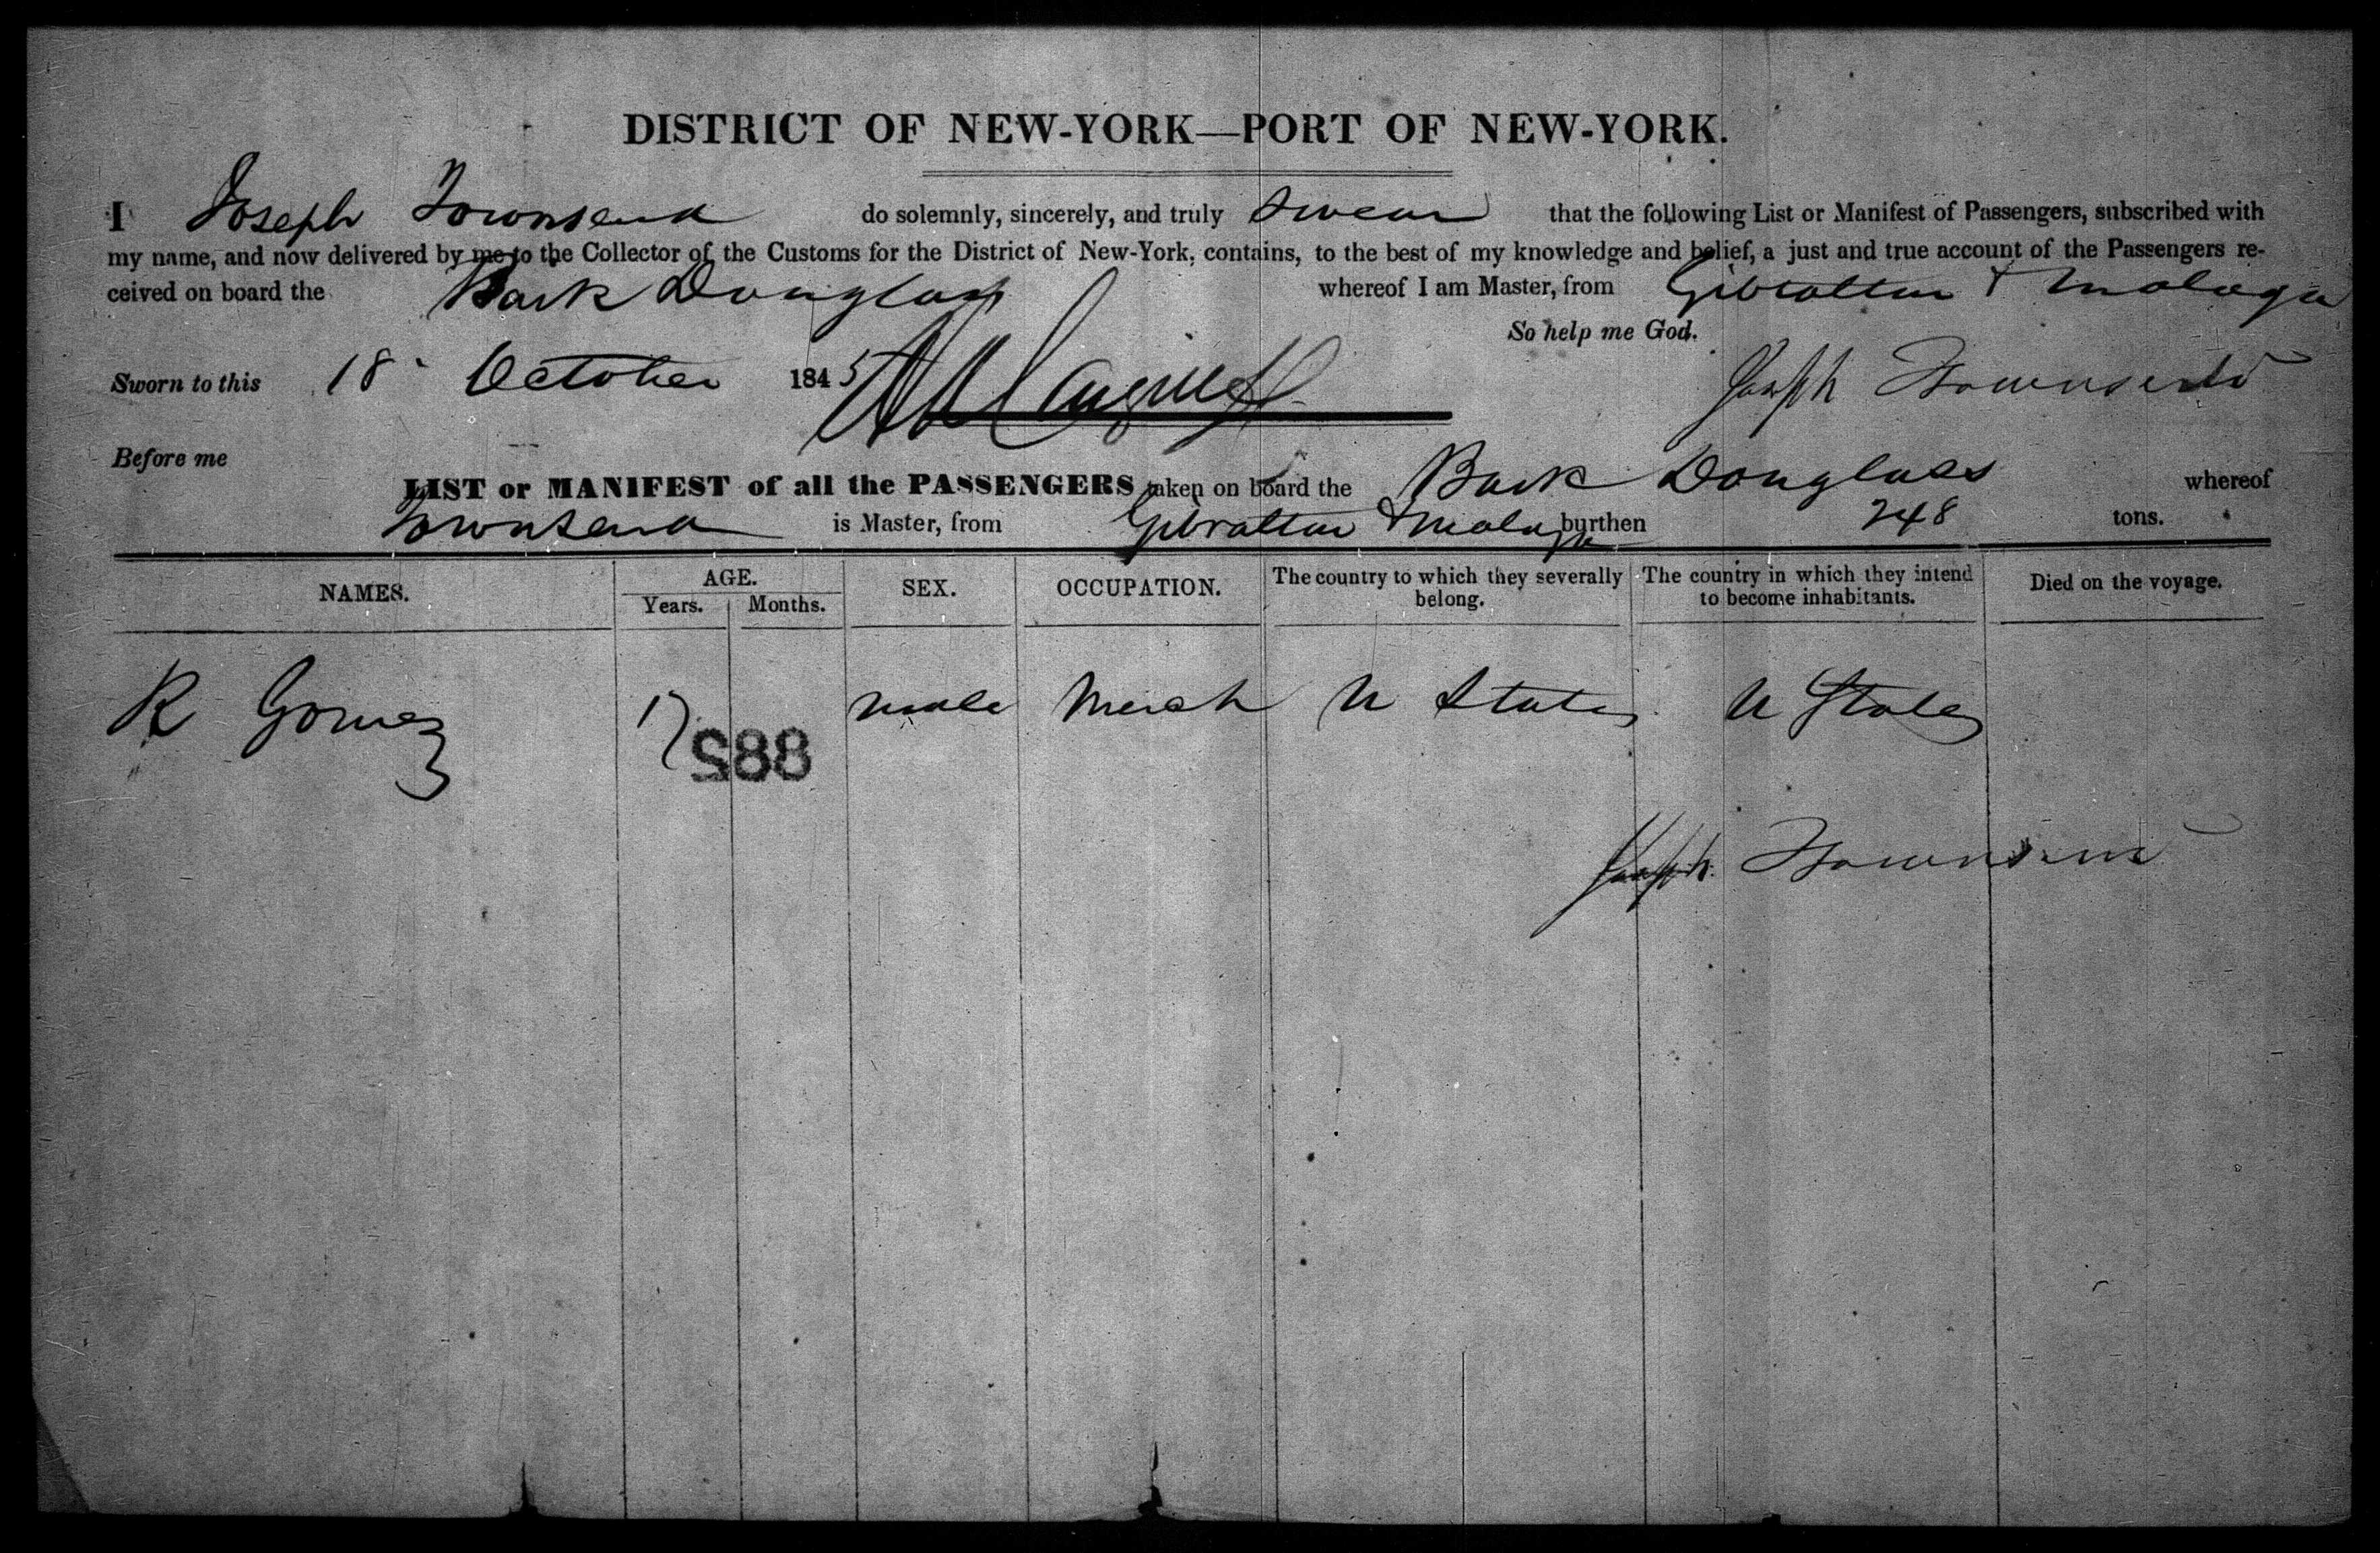 DISTRICT OF NEW-YORK—PORT OF NEW-YORK.
I Joseph Townsend do solemnly, sincerely, and truly Swear that the following List or Manifest of Passengers, subscribed with
my name, and now delivered by me to the Collector of the Customs for the District of New-York, contains, to the best of my knowledge and belief, a just and true account of the Passengers re-
ceived on board the Bark Douglass whereof I am Master, from Gibraltar & Malaga
So help me God.
Sworn to this 18 October 1845 Joseph Townsend
Before me
LIST or MANIFEST of all the PASSENGERS taken on board the Bark Douglass whereof
Townsend is Master, from Gibraltar & Malaga burthen 248 tons.
NAMES. AGE. Years. Months. SEX. OCCUPATION. The country to which they severally belong. The country in which they intend to become inhabitants. Died on the voyage.
R Gomez 17 male Merch U States U States
882
Joseph Townsend